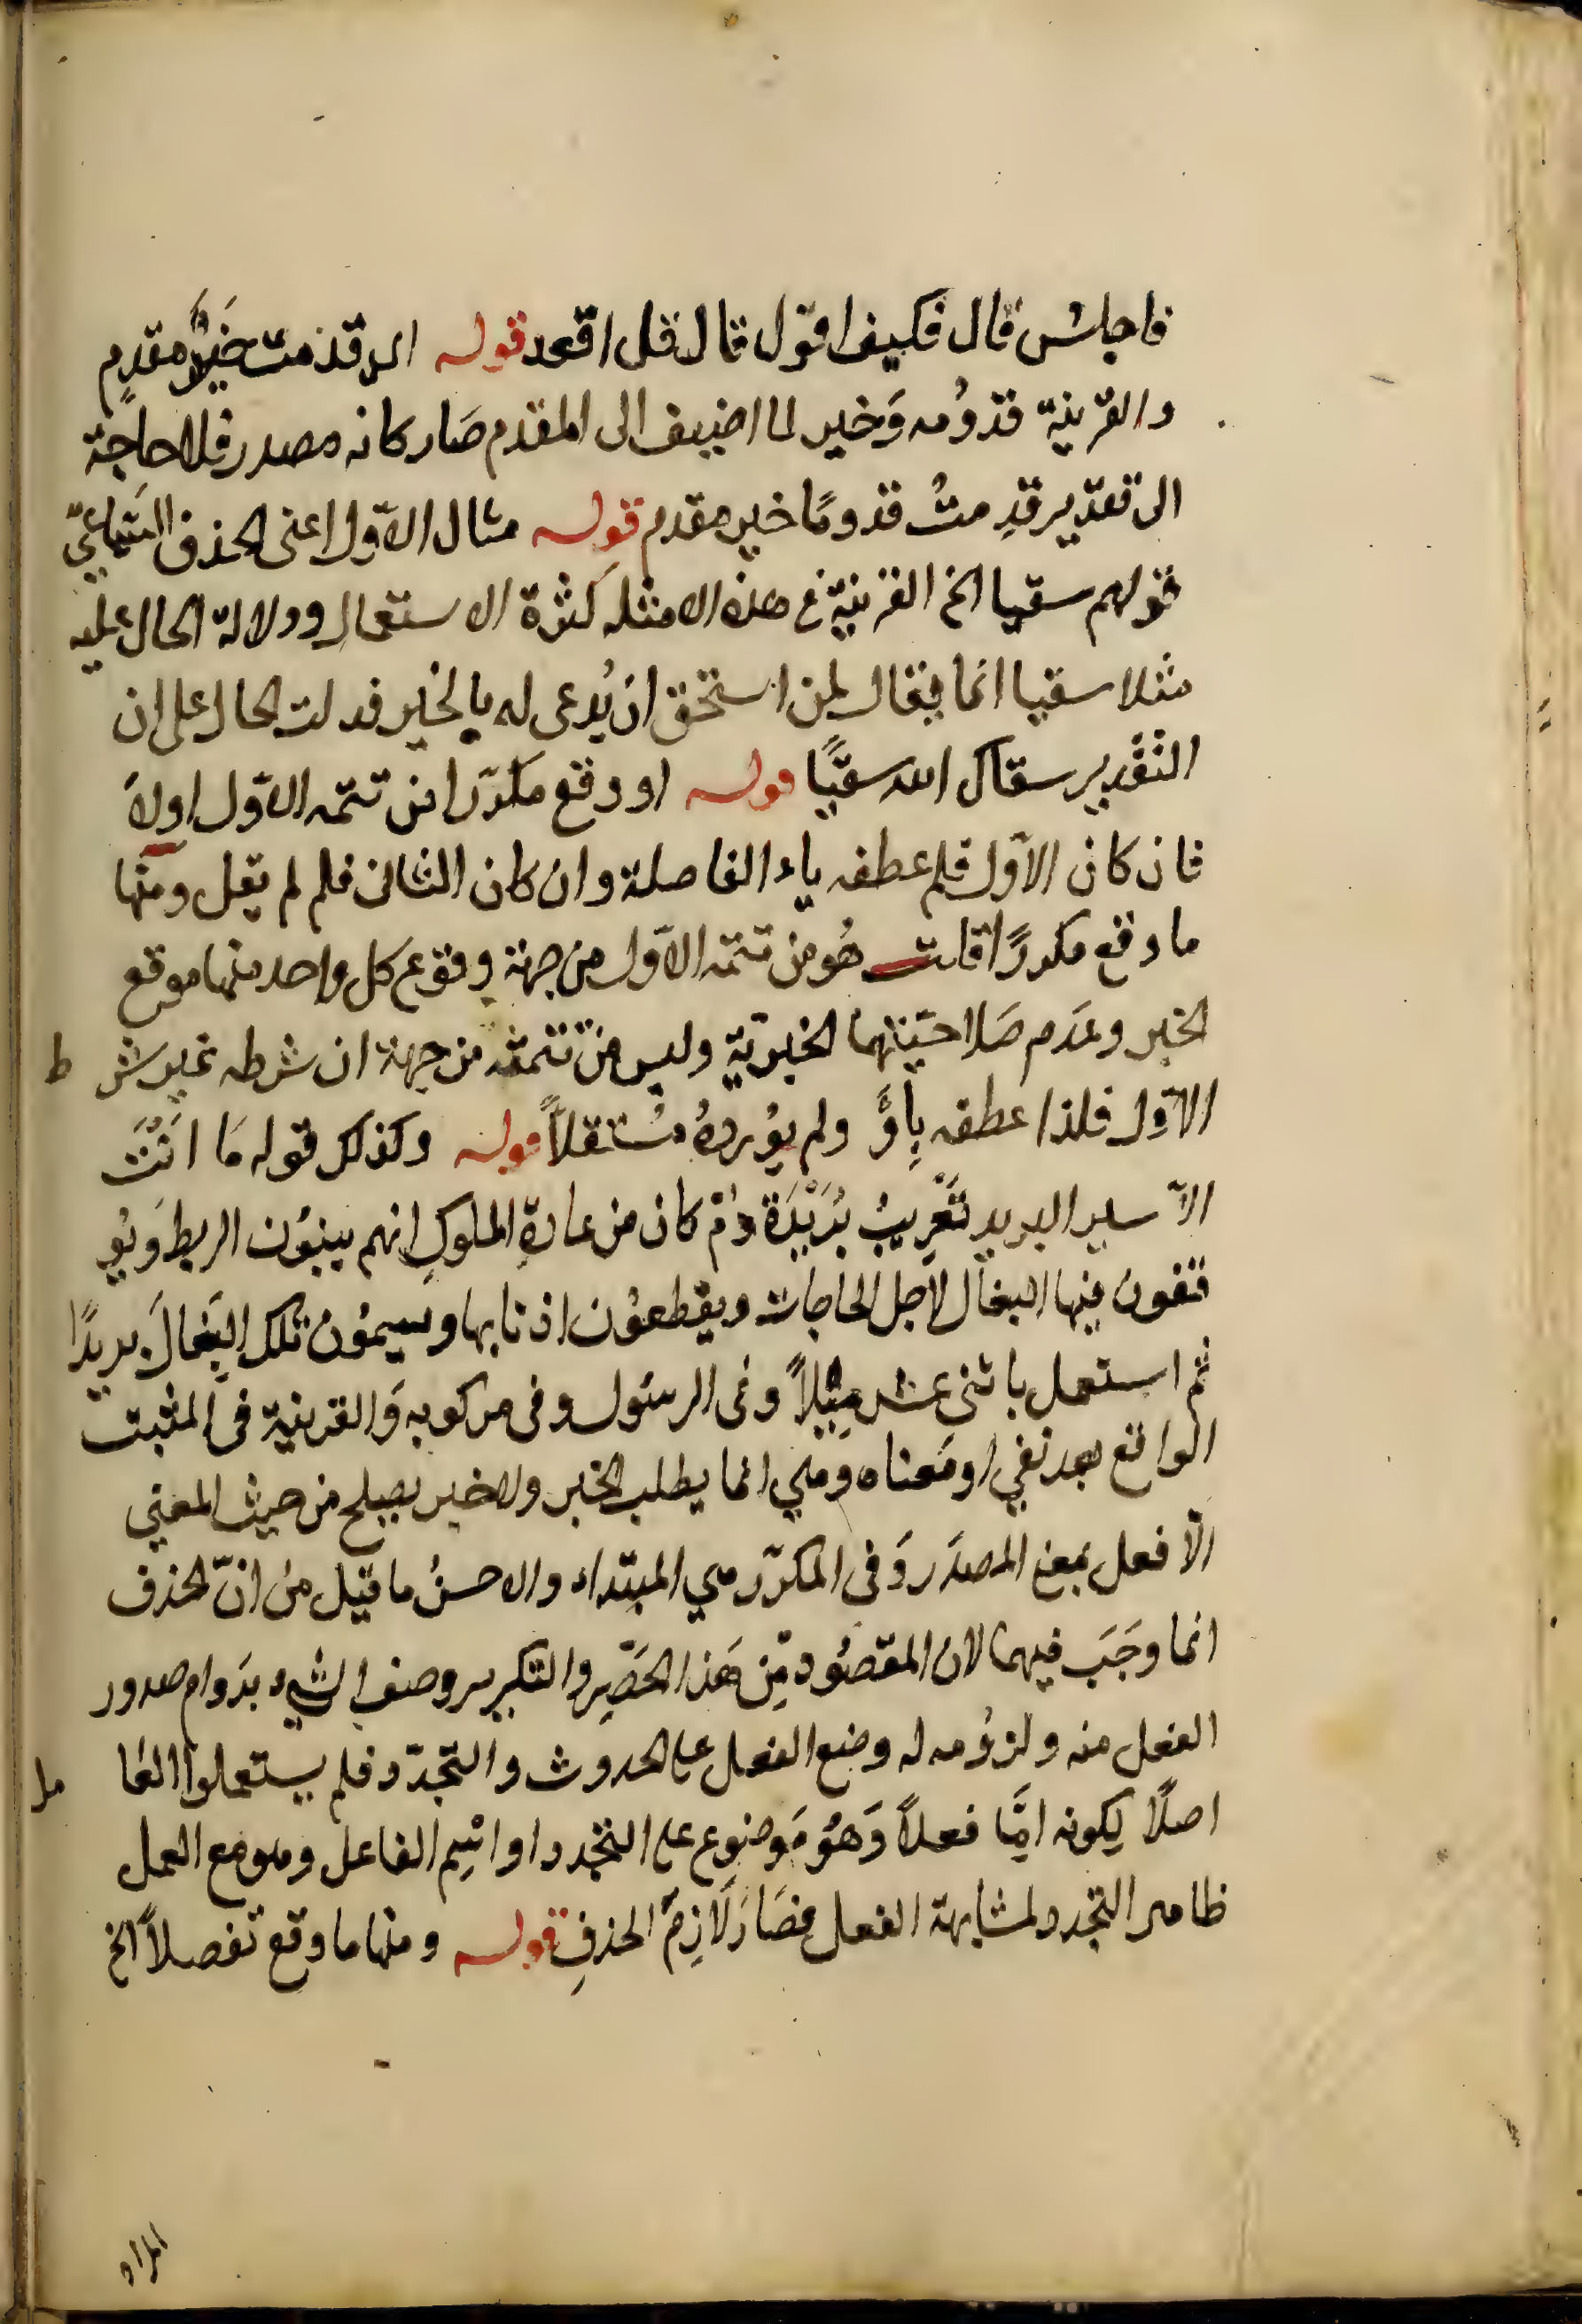 فاجلس قال فكيف اقول قال قل اقعد قوله اى قدمت خير مقدم
والقرينة قدومه وخير لما اضيف الى المقدم صار كانه مصدر فلا حاجة
الى تقدير قدمت قدوما خير مقدم قوله مثال الاول اعنى الحذف السماعي
قولهم سقيا الخ القرينة في هذه الامثلة كثرة الاستعمال ودلالة الحال عليه
مثلا سقيا انما يقال لمن استحق ان يدعى له بالخير فدلت الحال على ان
التقدير سقاك الله سقيا قوله او وقع مكررا من تتمه الاول اولا
فان كان الاول فلم عطفه باء الفاصلة وان كان الثانى فلم لم يقل ومنها
ما وقع مكررا قلت هو من تتمه الاول من جهة وقوع كل واحد منهما موقع
الخبر وعدم صلاحيتهما الخبرية وليس من تتمته من جهة ان شرطه غير شر ط
الاول فلذا عطفه باو ولم يورده مستقلا قوله وكذلك قوله ما انت
الا سير البريد تعريب بريدة دم كان من عادة الملوك انهم يبنون الربط ويو
قفون فيها البغال لاجل الحاجات ويقطعون اذنابها ويسمون تلك البغال بريدا
ثم استعمل باثنى عشر ميلا وفى الرسول وفى مركوبه والقرينة فى المثبت
الواقع بعد نفي او معناه وهي انما يطلب الخبر ولا خبر يصلح من حيث المعني
الا فعل بمعنى المصدر وفى المكرر هي المبتداء والاحسن ما قيل من ان الحذف
انما وجب فيهما لان المقصود من هذا الحصر والتكرير وصف الشيء بدوام صدور
الفعل منه ولزومه له وضع الفعل على الحدوث والتجدد فلم يستعملوا العا مل
اصلا لكونه اما فعلا وهو موضوع على التجدد او اسم الفاعل وهو مع العمل
ظاهر التجدد لمشابهة الفعل فصار لازم الحذف قوله ومنها ما وقع تفصلا الخ
المراد